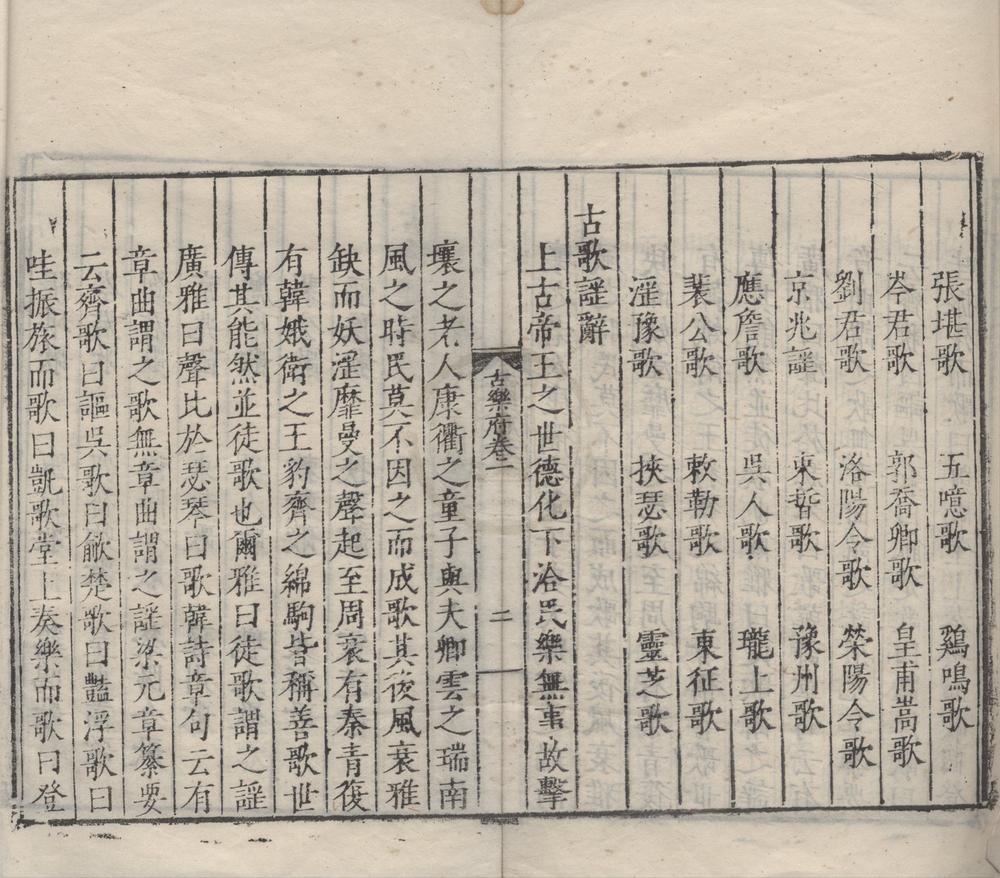 張堪歌 五噫歌 鷄鳴歌
岑君歌 郭喬卿歌 皇甫嵩歌
劉君歌 洛陽令歌 滎陽令歌
京兆謡 束晳歌 豫州歌
應詹歌 吳人歌 瓏上歌
裴公歌 敕勒歌 東征歌
淫豫歌 挾瑟歌 靈芝歌
古歌謡辭
上古帝王之世德化下洽民樂無事故擊
古樂府卷一 二
壤之老人康衢之童子與夫卿雲之瑞南
風之時民莫不因之而成歌其後風衰雅
缺而妖淫靡曼之聲起至周衰有秦青復
有韓娥衛之王豹齊之綿駒皆稱善歌世
傳其能然並徒歌也爾雅曰徒歌謂之謡
廣雅曰聲比於瑟琴曰歌韓詩章句云有
章曲謂之歌無章曲謂之謡梁元章纂要
云齊歌曰謳吳歌曰歈楚歌曰豔浮歌曰
哇振旅而歌曰凱歌堂上奏樂而歌曰登